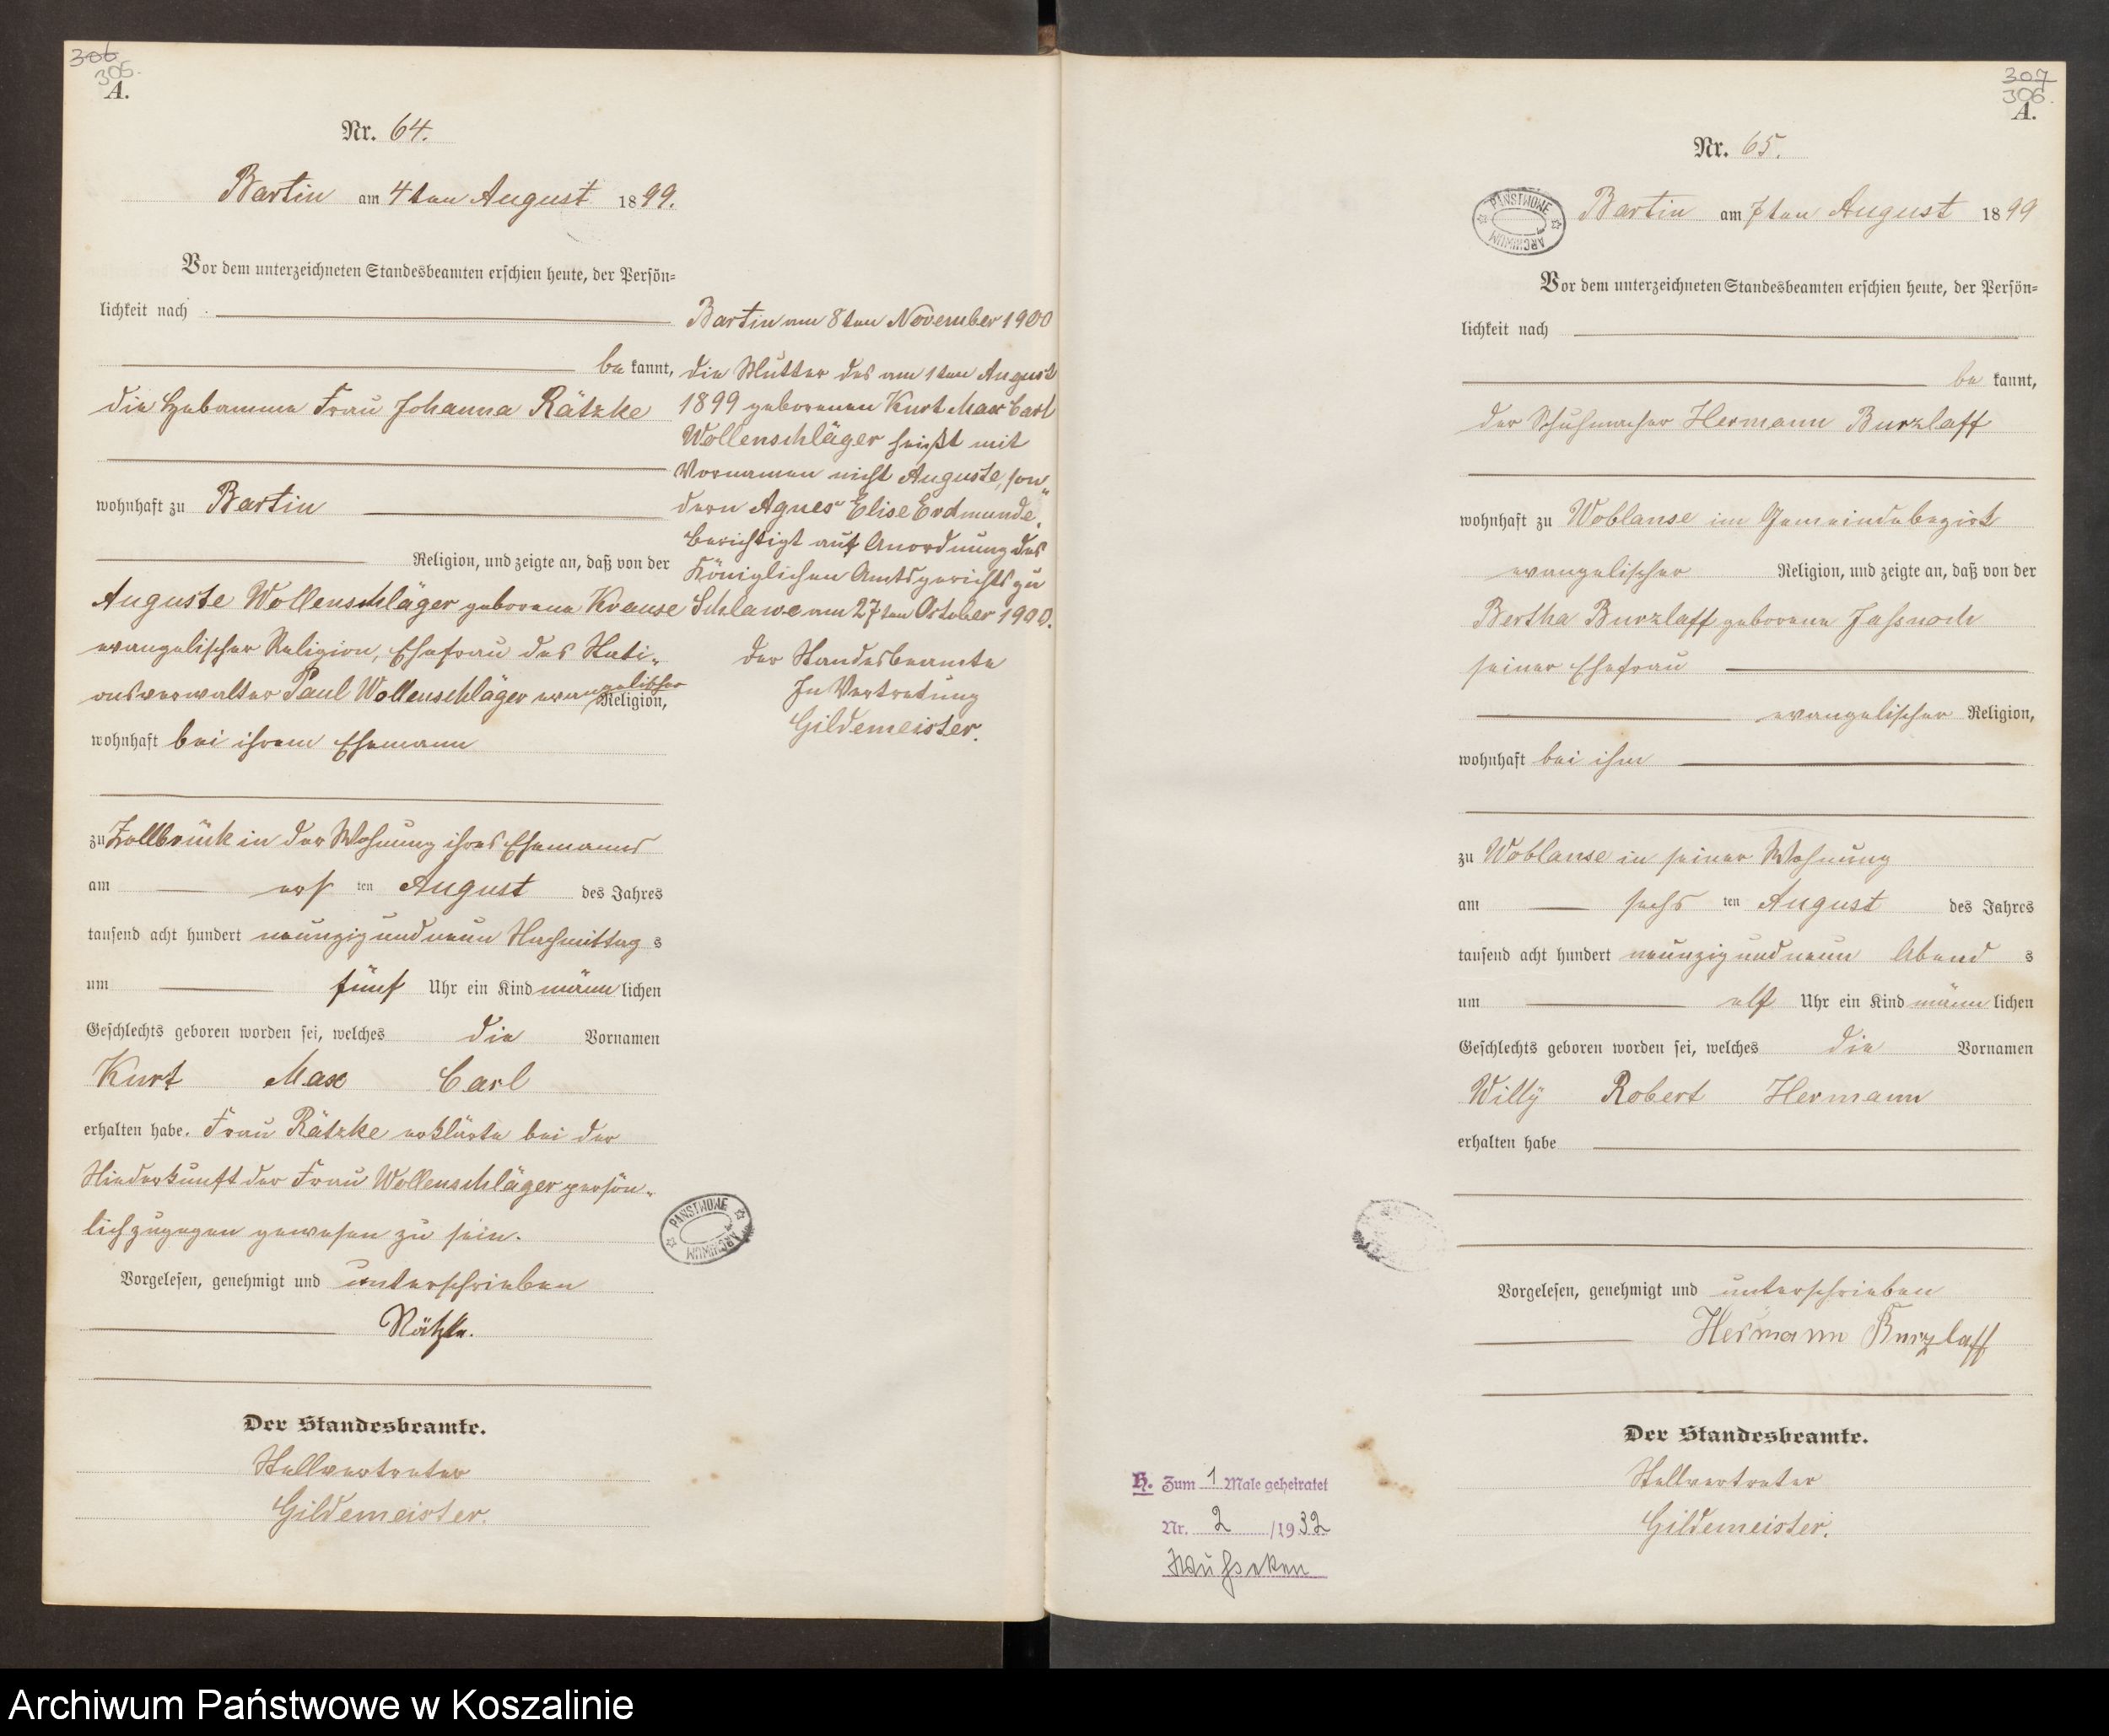 306
305.
A.
Nr. 64.
Bartin am 4ten August 1899.
Vor dem unterzeichneten Standesbeamten erschien heute, der Persön=
lichkeit nach
be kannt,
die Hebamme Frau Johanna Rätzke
wohnhaft zu Bartin
Religion, und zeigte an, daß von der
Auguste Wollenschläger geborene Krause
evangelischer Religion, Ehefrau des Stati-
onsverwalter Paul Wollenschläger evangelischer Religion,
wohnhaft bei ihrem Ehemann
zu Zollbrück in der Wohnung ihres Ehemanns
am ersten August des Jahres
tausend acht hundert neunzig und neun Nachmittag s
um fünf Uhr ein Kind männlichen
Geschlechts geboren worden sei, welches die Vornamen
Kurt Max Carl
erhalten habe. Frau Rätzke erklärte bei der
Niederkunft der Frau Wollenschläger persön-
lich zugegen gewesen zu sein.
Vorgelesen, genehmigt und unterschrieben
Rätzke.
Der Standesbeamte.
Stellvertreter
Gildemeister.
Bartin am 8ten November 1900
die Mutter des am 1ten August
1899 geborenen Kurt Max Carl
Wollenschläger heißt mit
Vornamen nicht Auguste, son„
dern Agnes Elise Erdmunde.
Berichtigt auf Anordnung des
Königlichen Amtsgerichts zu
Schlawe am 27ten October 1900.
Der Standesbeamte
In Vertretung
Gildemeister.
PAŃSTWOWE ARCHIWUM
307
306.
A.
Nr. 65.
PAŃSTWOWE ARCHIWUM
Bartin am 7ten August 1899
Vor dem unterzeichneten Standesbeamten erschien heute, der Persön=
lichkeit nach
be kannt,
der Schuhmacher Hermann Burzlaff
wohnhaft zu Woblanse im Gemeindebezirk
evangelischer Religion, und zeigte an, daß von der
Bertha Burzlaff geborene
seiner Ehefrau
evangelischer Religion,
wohnhaft bei ihm
zu Woblanse in seiner Wohnung
am sechs ten August des Jahres
tausend acht hundert neunzig und neun Abend s
um elf Uhr ein Kind männ lichen
Geschlechts geboren worden sei, welches die Vornamen
Willy Robert Hermann
erhalten habe
Vorgelesen, genehmigt und unterschrieben
Hermann Burzlaff
Der Standesbeamte.
Stellvertreter
Gildemeister.
H. Zum 1 Male geheiratet
Nr. 2 /1932
Archiwum Państwowe w Koszalinie